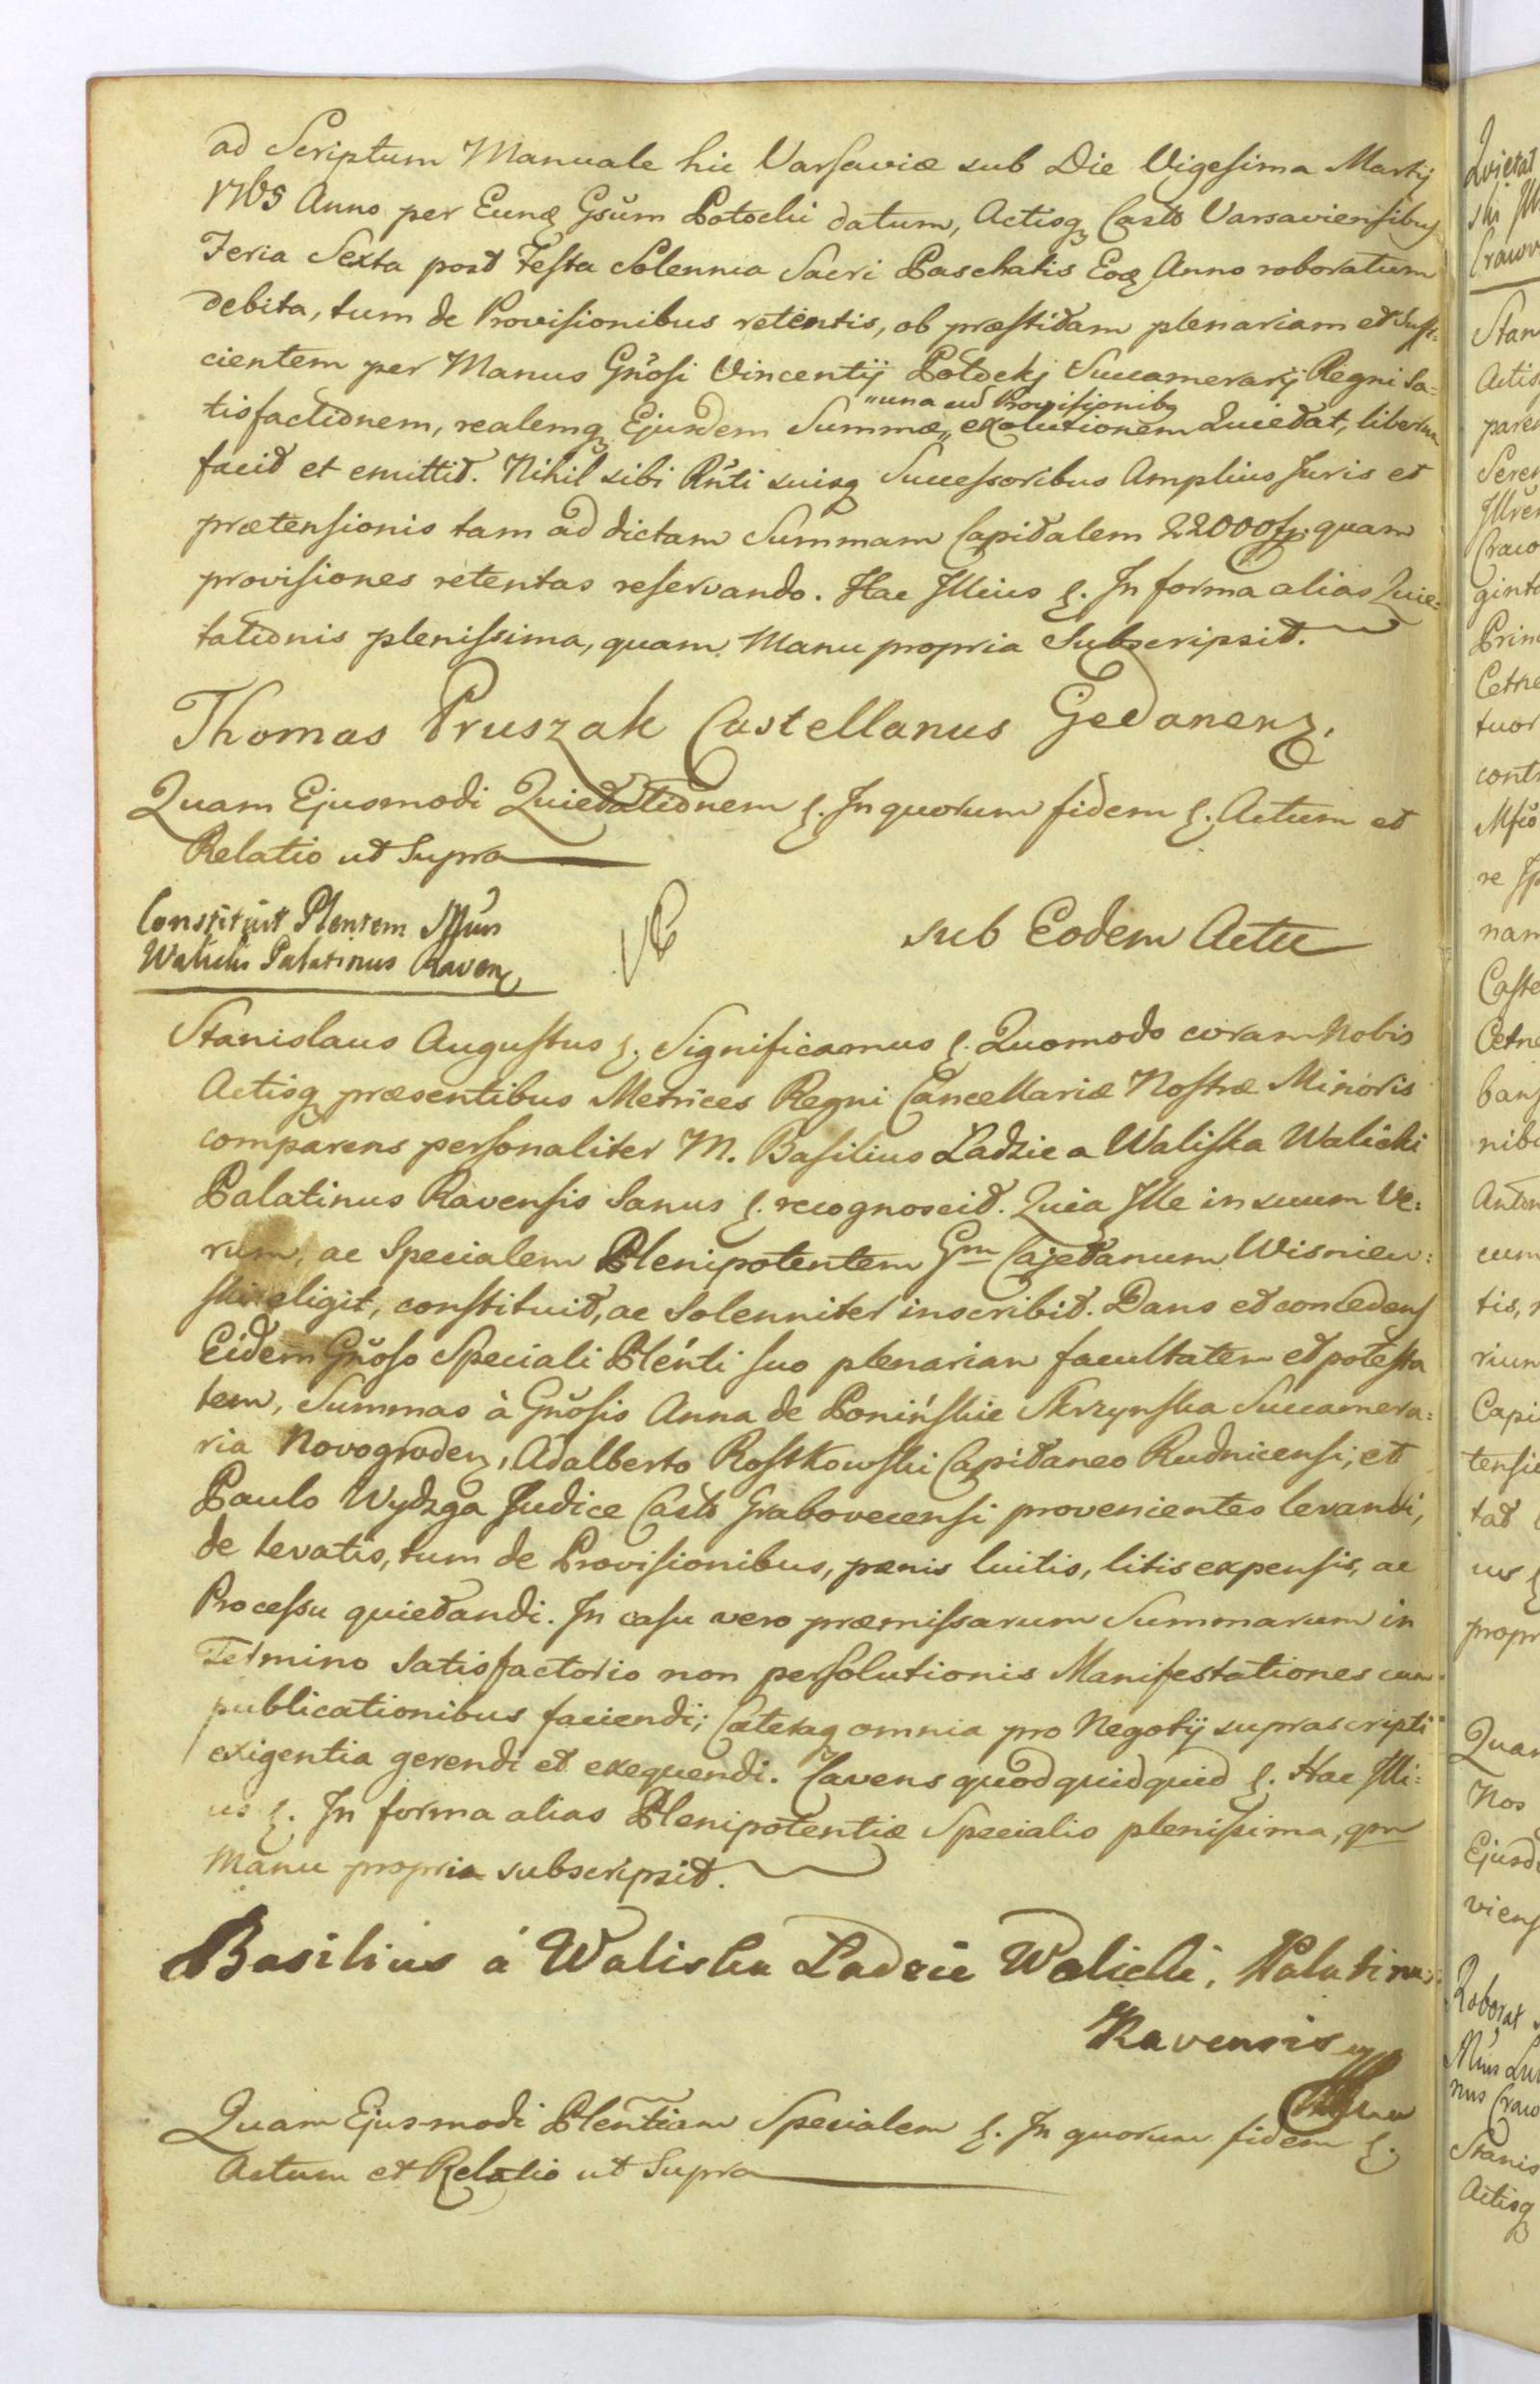 ad Scriptum Manuale hic Varsaviæ sub Die Vigesima Martij
1765 Anno per Eunq Gsům Potocki datum, Actisq Casto Varsaviensibus
Feria Sexta post Festa Solennia Sacri Paschatis Eoq Anno roboratum
debita, tum de Provisionibus retentis, ob præstitam plenariam et suffi:
cientem per Manus Gňosi Vincentij Potockj Succamerarij Regni Sa=
tisfactionem, realemq Ejusdem Summæ „una cũ Provisionibq exolutionem Quietat, liberum
facit et emittit. Nihil sibi Rňti suisq Successoribus Amplius Juris et
prætensionis tam ad dictam Summam Capitalem 22000 fp. quam
provisiones retentas reservando. Hac Illius ę. In forma alias Quie=
tationis plenissima, quam Manu propria Subscripsit.
Thomas Pruszak Castellanus Gedanenz.
Quam Ejusmodi Quietationem ę. In quorum fidem ę. Actum et
Relatio ut Supra
Constituit Plentem Můs
Walicki Palatinus Raven
sub Eodem Actu
Stanislaus Augustus ę. Significamus ę. Quomodo coram Nobis
Actisq præsentibus Metrices Regni Cancellariæ Nostræ Minoris
comparens personaliter M. Basilius Ladzic a Waliska Walicki
Palatinus Ravensis Sanus ę. recognoscit. Quia Ille in suum Ve:
rum, ac Specialem Plenipotentem Gm Cajetanum Wisniew:
ski eligit, constituit, ac Solenniter inscribit. Dans et concedens
Eidem Gňoso Speciali Plěnti suo plenariam facultatem et potesta
tem, Summas à Gňosis Anna de Ponińskie Skrzynska Succamera:
ria Novogroden, Adalberto Rostkowski Capitaneo Rudnicensi, et
Paulo Wydzga Judice Casto Grabovecensi provenientes levandi,
de levatis, tum de Provisionibus, pænis luitis, litis expensis, ac
Processu quietandi. In casu vero præmissarum Summarum in
Termino Satisfactorio non persolutionis Manifestationes cum
publicationibus faciendi; Cæteraq omnia pro Negotij suprascripti
exigentia gerendi et exequendi. Cavens quod quidquid ę. Hac Illi:
us ę. In forma alias Plenipotentiæ Specialis plenissima, qm
Manu propria subscripsit.
Basilius á Waliska Ladzic Walicki, Palatinus
Ravensis
Quam Ejusmodi Pleñtiam Specialem ę. In quorum fidem ę.
Actum et Relatio ut Supra